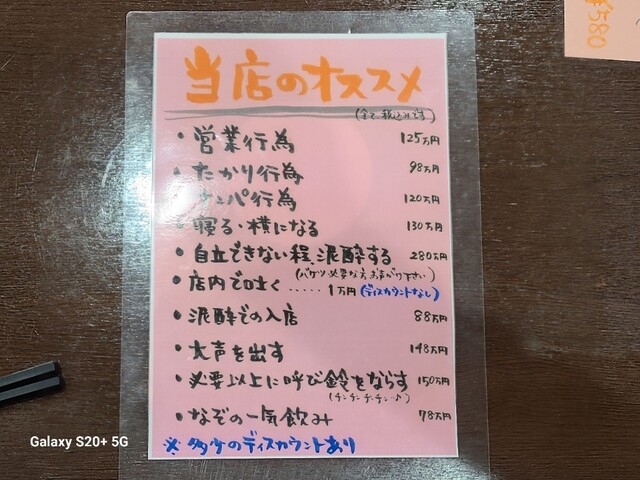 ¥580
当店のオススメ
(全て税込みです)
・営業行為 125万円
・たかり行為 98万円
・ナンパ行為 120万円
・寝る・横になる 130万円
・自立できない程、泥酔する 280万円
(バケツ必要な方、お声がけ下さい)
・店内で吐く ‥‥‥ 1万円 (ディスカウントなし)
・泥酔での入店 88万円
・大声を出す 148万円
・必要以上に呼び鈴をならす 150万円
(チンチンチンチン♪)
・なぞの一気飲み 78万円
※多少のディスカウントあり
Galaxy S20+ 5G